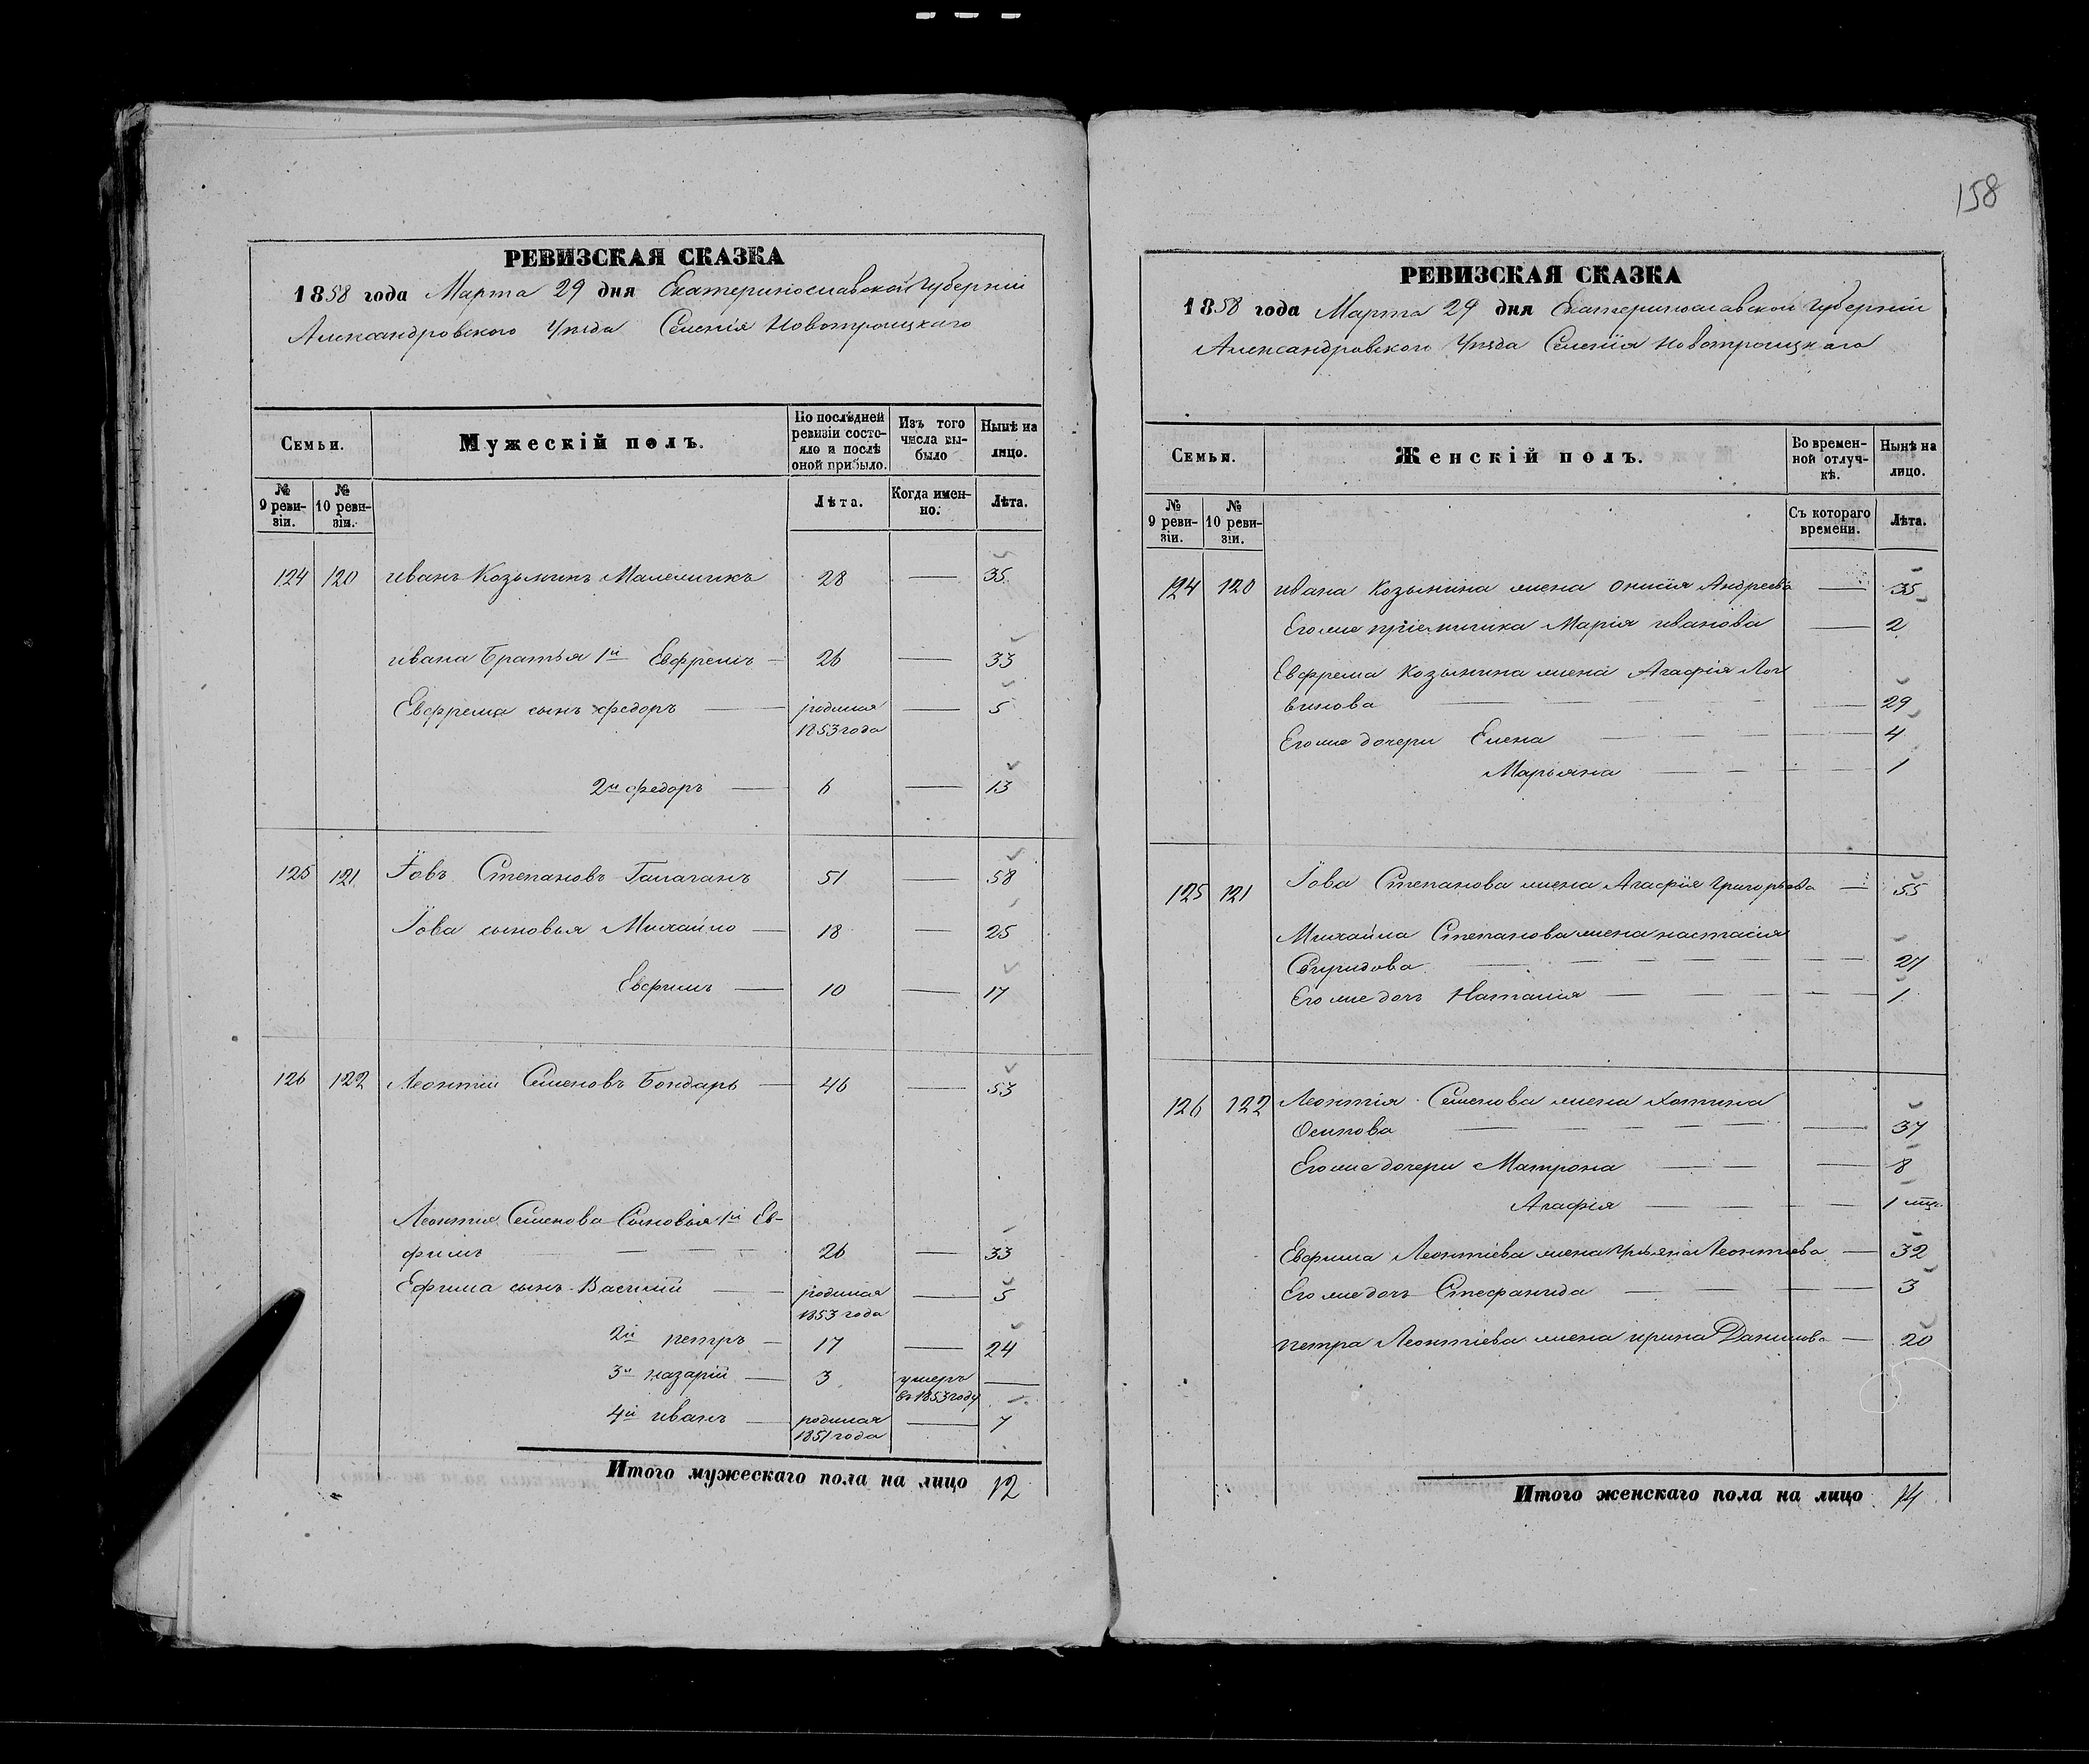 158
РЕВИЗСКАЯ СКАЗКА
1858 года Марта 29 дня Екатеринославской Губерніи
Александровского Уѣзда Селенія Новотроицкаго
Семьи.
Мужескій полъ.
По послѣдней ревизіи состояло и послѣ оной прибыло.
Изъ того числа выбыло
Нынѣ на лицо.
№ 9 ревизіи.
№ 10 ревизіи.
Лѣта.
Когда именно.
Лѣта.
124 120 иванъ Козьминъ 28 — 35
ивана Братья 1й Евфремъ — 26 — 33
Евфрема сынъ федоръ — родился 1853 года — 5
2й федоръ — 6 — 13
125 121 Іовъ Степановъ Галаганъ 51 — 58
Іова сыновья Михайло — 18 — 25
Евфимъ — 10 — 17
126 122 Леонтій Семеновъ Бондарь — 46 — 53
Леонтия Семенова Сыновья 1й Ев-
фимъ — 26 — 33
Ефима сынъ Василій — родился 1853 года — 5
2й петръ — 17 — 24
3й назарій — 3 умеръ въ 1853 году —
4й иванъ — родился 1851 года — 7
Итого мужескаго пола на лицо 12
РЕВИЗСКАЯ СКАЗКА
1858 года Марта 29 дня Екатеринославской Губерніи
Александровского Уѣзда Селенія Новотроицкаго
Семьи.
Женскій полъ.
Во временной отлучкѣ.
Нынѣ на лицо.
№ 9 ревизіи.
№ 10 ревизіи.
Съ котораго времени.
Лѣта.
124 120 ивана Козьмина жена Андреева — 35
Его же Марія иванова — 2
Евфрема Козьмина жена Агафія Лог
винова — 29
Его же дочери Елена — 4
Марьяна — 1
125 121 Іова Степанова жена Агафія григорьева — 55
Михайла Степанова жена настасія
Свиридова — 27
Его же дочь Наталія — 1
126 122 Леонтія Семенова жена
Осипова — 37
Его же дочери Матрона — 8
Агафія — 1 мца
Евфима Леонтіева жена Леонтіева — 32
Его же дочь Стефанида — 3
петра Леонтіева жена ирина Данилова — 20
Итого женскаго пола на лицо 14